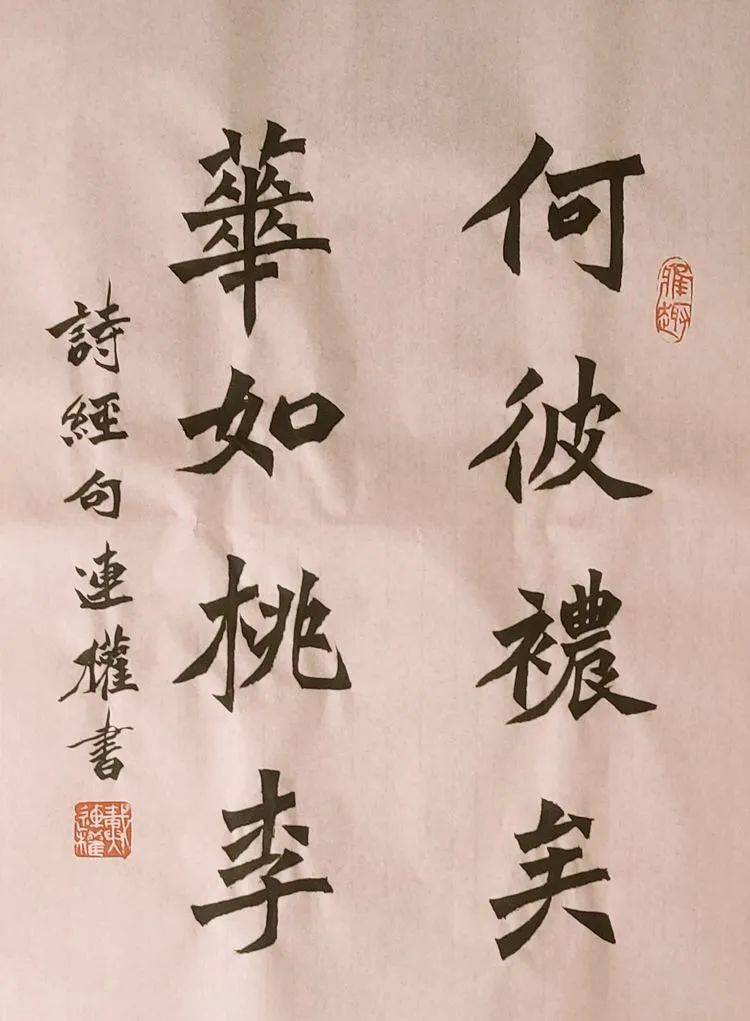 何彼襛矣
華如桃李
詩經句連權書
雅趣
戴連權